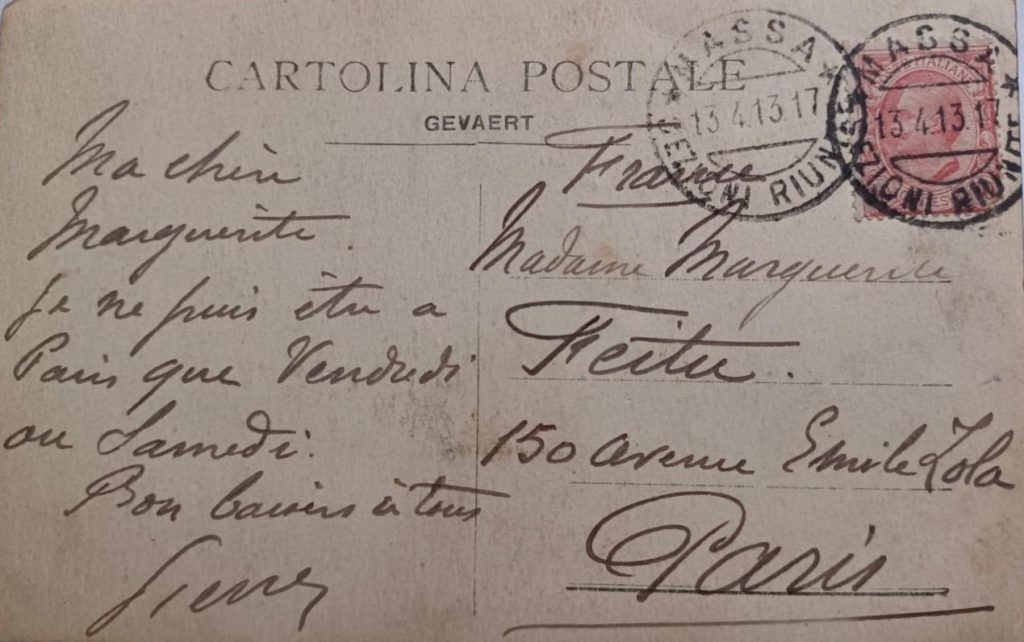 CARTOLINA POSTALE
GEVAERT
MASSA
13.4.13.17
SEZIONI RIUNITE
MASSA
13.4.13.17
SEZIONI RIUNITE
Ma chère
Marguerite.
Je ne puis être a
Paris que Vendredi
ou Samedi.
Bon baisers à tous
France
Madame Marguerite
150 avenue Emile Zola
Paris